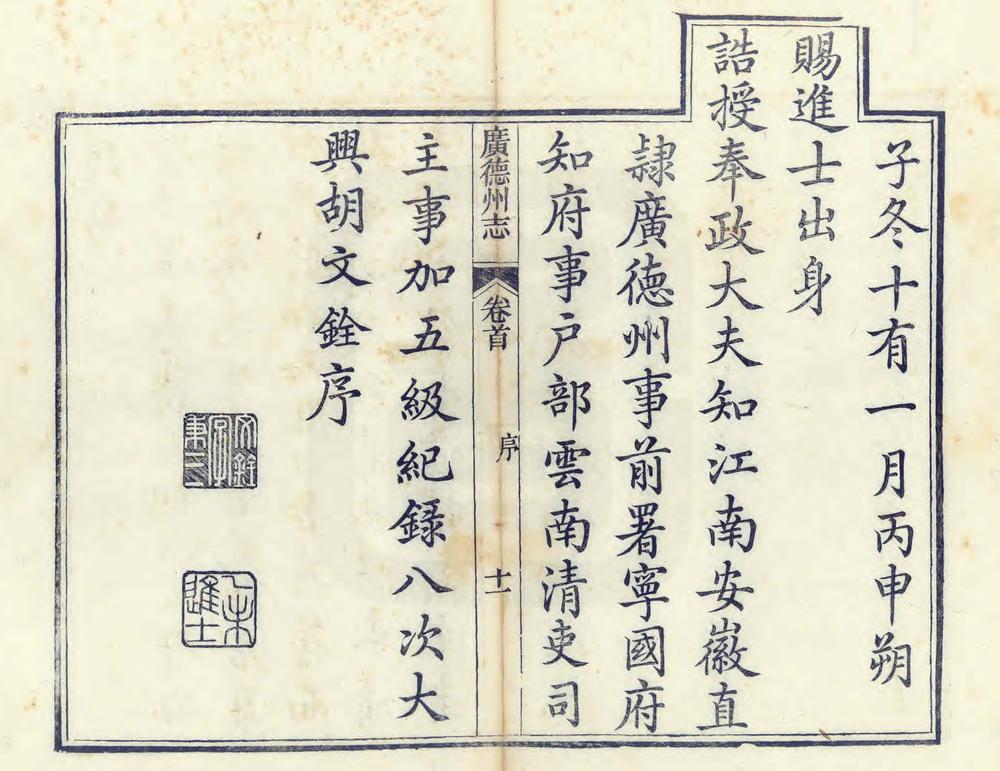 子冬十有一月丙申朔
賜進士出身
誥授奉政大夫知江南安徽直
隸廣德州事前署寧國府
知府事户部雲南清吏司
廣德州志 卷首 序 十一
主事加五級紀錄八次大
興胡文銓序
文銓字秉三